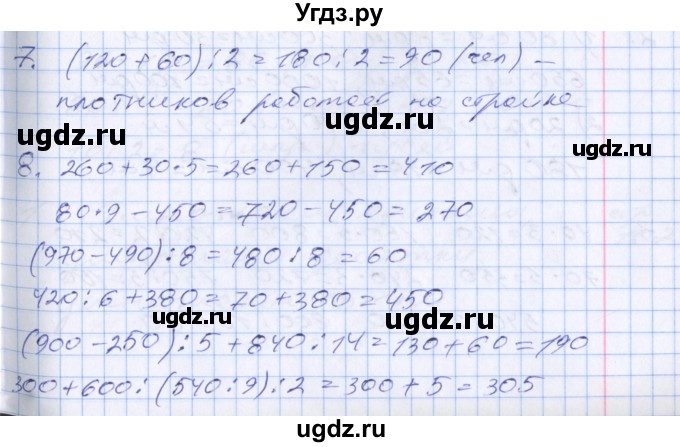 Угдз.ру
7. (120+60):2=180:2=90 (чел) –
плотников работает на стройке
ugdz.ru ugdz.ru
ugdz.ru
8. 260+30·5=260+150=410
80·9-450=720-450=270
(970-490):8=480:8=60
420:6+380=70+380=450
ugdz.ru ugdz.ru
(900-250):5+840:14=130+60=190
300+600:(540:9):2=300+5=305
ugdz.ru